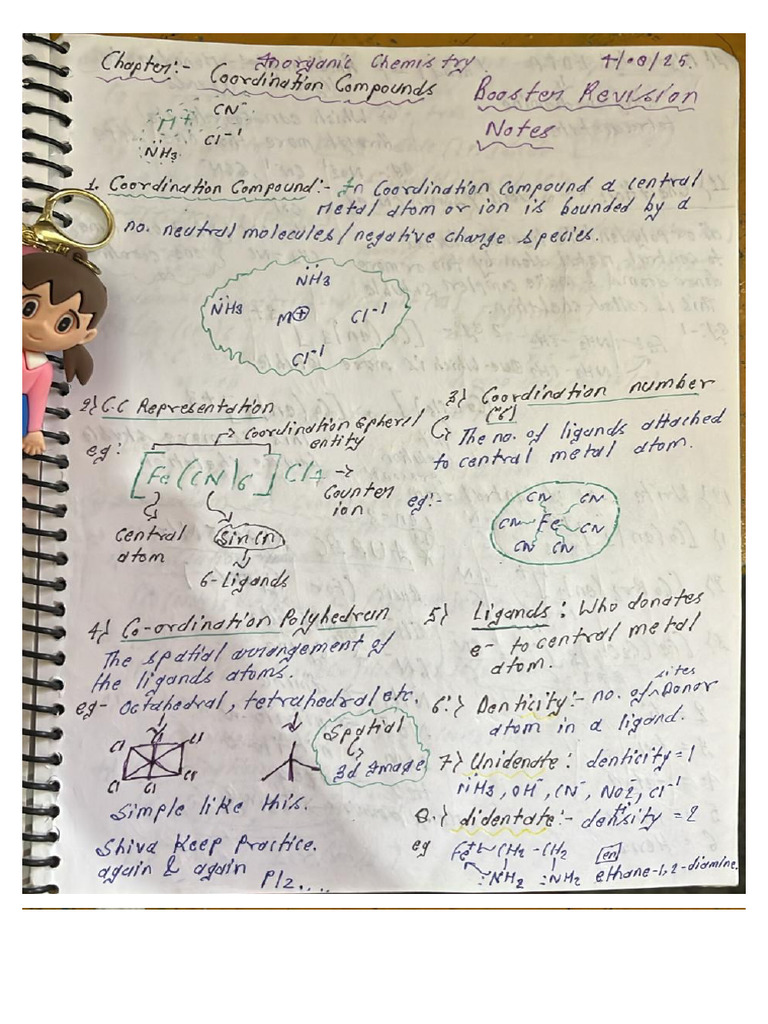 Inorganic Chemistry
Chapter:- Coordination Compounds
Booster Revision
Notes
M+
CN-
Cl-1
NH3
1. Coordination Compound:- In coordination compound a central
metal atom or ion is bounded by a
no. neutral molecules/negative charge species.
NH3
NH3 M+ Cl-1
Cl-1
2) C.C Representation
eg: Coordination spheral
entity
[Fe(CN)6]Cl4 → Counter
ion
central
atom
Six CN
6-Ligands
3) Coordination number
("6")
The no. of ligands attached
to central metal atom.
eg:-
CN CN
CN Fe CN
CN CN
4) Co-ordination Polyhedran
The spatial arrangement of
the ligands atoms.
eg- octahedral, tetrahedral etc.
Cl Cl
Cl Cl
Cl
Spatial
3d Image
Simple like this.
Shiva Keep Practice.
again & again
Plz....
5) Ligands: Who donates
e- to central metal
atom.
6:) Denticity:- no. of sites Donor
atom in a ligand.
7) Unidenate: denticity = 1
NH3, OH-, CN-, NO2-, Cl-1
8.) didentate:- density = 2
eg Fe++ CH2 - CH2 [en]
:NH2 :NH2 ethane-1,2-diamine.